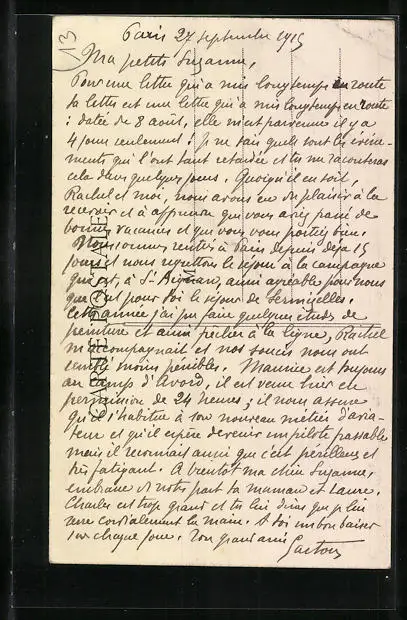 13
Paris 27 septembre 1915
Ma petite Suzanne,
Pour une lettre qui a mis longtemps en route
ta lettre est une lettre qui a mis longtemps en route
: datée du 8 août, elle m'est parvenue il y a
4 jours seulement ! Je ne sais quels sont les événe-
ments qui l'ont tant retardée et tu me raconteras
cela dans quelques jours. Quoiqu'il en soit,
Rachel et moi, nous avons eu du plaisir à la
recevoir et à apprendre que vous aviez passé de
bonnes vacances et que vous vous portiez bien.
Nous sommes rentrés à Paris depuis déjà 15
jours et nous regrettons le séjour à la campagne
qui est, à St Aignan, aussi agréable pour nous
que l'est pour toi le séjour de
Cette année j'ai pu faire quelques études de
peinture et aussi pêcher à la ligne, Rachel
m'accompagnait et nos soucis nous ont
semblé moins pénibles. Maurice est toujours
au camp d'Avord, il est venu hier en
permission de 24 heures ; il nous assure
qu'il s'habitue à son nouveau métier d'avia-
teur et qu'il espère devenir un pilote passable
mais il reconnaît aussi que c'est périlleux et
très fatigant. A bientôt ma chère Suzanne,
embrasse de notre part ta maman et Laure.
Charles est trop grand et tu lui diras que je lui
serre cordialement la main. A toi un bon baiser
sur chaque joue. Ton grand ami
Gaston
CARTE POSTALE